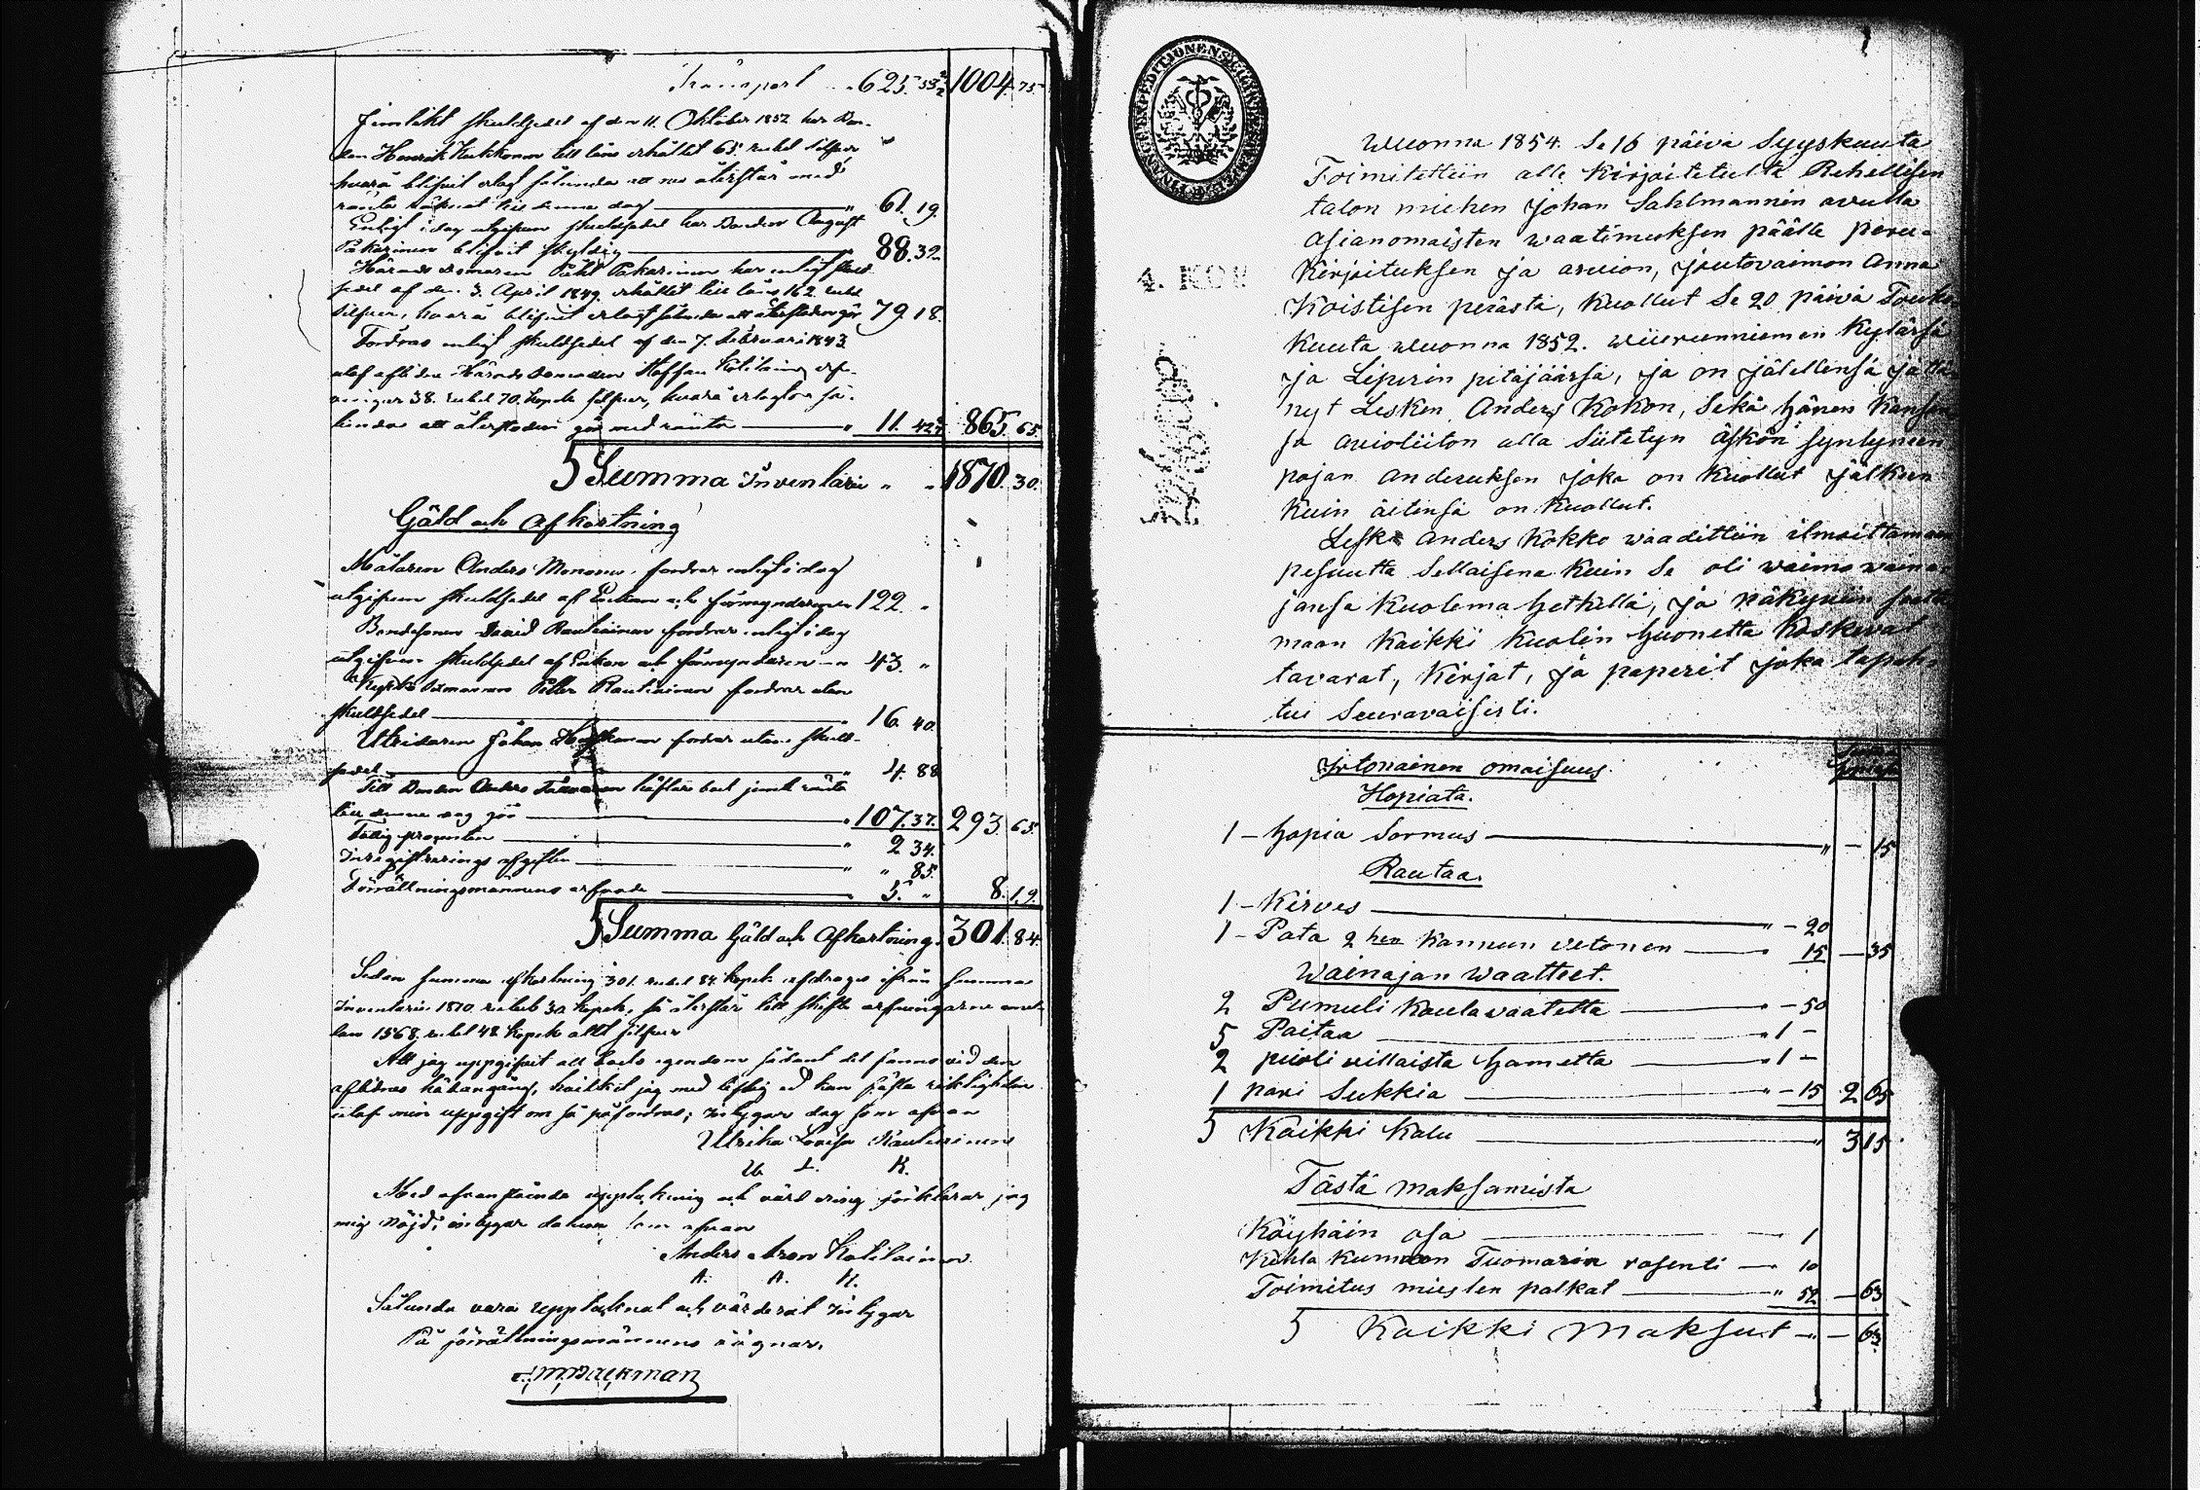 Transport 625. 53 1004. 75
skuldsedel af den 11. Oktober 1852 har Bon-
den Henrik Kukkonen till låns erhållit 65. rubel silfver
hvarå blifvit erlagt sålunda att nu återstår med
ränta till denna dag 61. 19.
Enligt i dag utgifven skuldsedel har Bonden August
Pakarinen blifvit skyldig 88. 32
Härads Domaren Påhl Pakarinen har enligt skuld-
sedel af den 3. April 1849 erhållit till låns 162 rubel
silfver, hvarå blifvit erlagt sålunda att återstoden gör 79. 18.
Fordras enligt skuldsedel af den 7. Februari 1843
aflidne Härads Domaren Staffan Kotilainens arf-
vingar 38. rubel 70. kopek silfver, hvarå erlagts så-
lunda att återstoden gör med ränta 11. 865. 65.
S Summa Inventarii 1870. 30.
Gäld och Afkortning
Målaren Anders Mononen fordrar enligt i dag
utgifven skuldsedel af Enkan och förmyndaren 122. "
Bondesonen David Rautiainen fordrar enligt i dag
utgifven skuldsedel af Enkan och förmyndaren 43. "
Petter Rautiainen fordrar utan
skuldsedel 16. 40
Johan fordrar utan skuld-
sedel 4. 88
Till Bonden Anders häftar boet jemte ränta
till denna dag gör 107. 37. 293. 65.
Fattig procenten 2 34.
Inregistrerings afgiften " 85.
Förrättningsmannens arfvode 5. " 8. 19.
S Summa Gäld och Afkortning 301. 84
Sedan summa afkortning 301. rubel 84. kopek afdrages ifrån summa
Inventarii 1870. rubel 30. kopek, så återstår till skifte arfvingarne emel-
lan 1568. rubel 48. kopek allt silfver
Att jag uppgifvit all boets egendom sådant det fanns vid den
aflidnes hädangång, hvilket jag med liflig ed kan fästa riktigheten
utaf min uppgift om så påfordras; intygar dag som ofvan
Ulrika Lovisa
U. L. K.
Med ofvanstående uppteckning och värdering förklarar jag
mig nöjd; intygar datum som ofvan
Anders Aron Kotilainen
A. A. K.
Sålunda vara upptecknat och värderat intygar
På förrättningsmannens vägnar.
FINANCE EXPEDITIONENS
4. KOP
Wuonna 1854. Se 16 päivä Syyskuuta
Toimitettiin alle kirjoitetulta Rehellisen
talon miehen Johan Sahlmannin avulla
asianomaisten waatimuksen päälle peru-
kirjoituksen ja arvion, joutovaimon Anna
Koistisen perästä, kuollut Se 20 päivä Touko
kuuta wuonna 1852. wiurunniemen kylässä
ja Liperin pitäjäässä, ja on jälellensä jättä-
nyt Lesken Anders Kokon, sekä hänen kanssa
sa avioliiton alla siitetyn äskön syntyneen
pojan anderuksen joka on kuollut jälkeen
kuin äitinsä on kuollut.
Leski Anders Kokko waadittiin ilmoittamaan
pesuutta Sellaisena kuin Se oli waimo waina-
jansa kuolema hetkellä, ja näkyviin saatta
maan kaikki kuolin huonetta koskevat
tavarat, kirjat, ja paperit joka tapah-
tui Seuravaisesti.
Irtonainen omaisuus.
Hopiata.
1 – hopia Sormus " – 15
Rautaa.
1 – Kirves " – 20
1 – Pata 2 hen kannun vetonen " 15 – 35
Wainajan waatteet.
2 Pumuli kaulawaatetta " – 50
5 Paitaa " 1 –
2 puoli villaista hametta " 1 –
1 pari Sukkia " – 15 2 65
S Kaikki Kalu " 3 15
Tästä maksamista
Köyhäin osa 1
Kihla kunnan Tuomarin rosenti 10
Toimitus miesten palkat " 52 – 63
S Kaikki Maksut " – 63